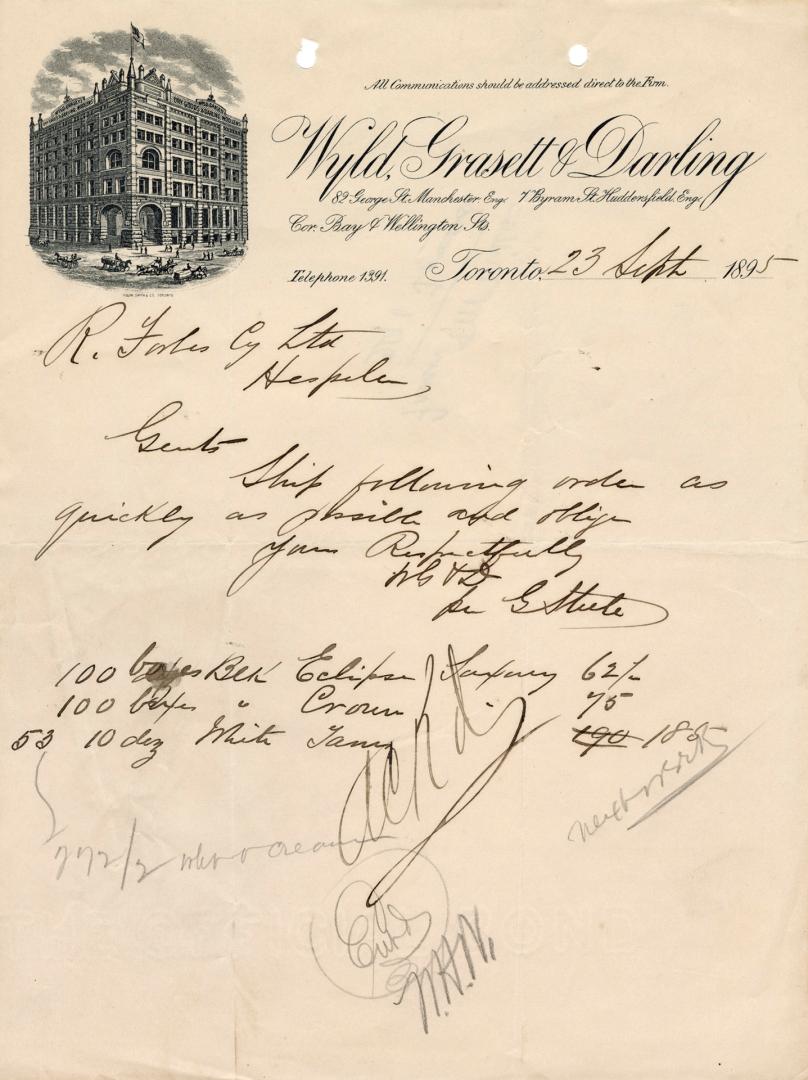 All Communications should be addressed direct to the Firm.
Wyld, Grasett & Darling
82 George St. Manchester. Eng. 7 Byram St. Huddersfield. Eng.
Cor. Bay & Wellington Sts.
Telephone 1391. Toronto, 23 Sept 1895
R. Forbes Cy Ltd
Hespeler
Gents
Ship following order as
quickly as possible and oblige
Yours Respectfully
WG&D
per G Steele
100 boxes Blk Eclipse Saxony 62½
100 boxes " Crown 75
53 10 doz White 190 185
Ackd
next week
772/2 cream
Entd
N.H.N.